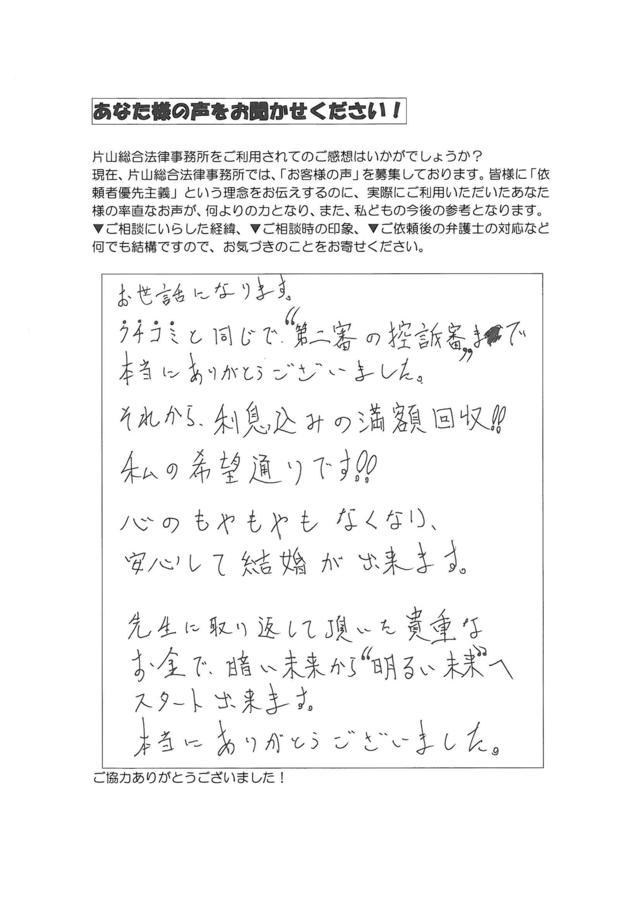 あなた様の声をお聞かせください！
片山総合法律事務所をご利用されてのご感想はいかがでしょうか？
現在、片山総合法律事務所では、「お客様の声」を募集しております。皆様に「依
頼者優先主義」という理念をお伝えするのに、実際にご利用いただいたあなた
様の率直なお声が、何よりの力となり、また、私どもの今後の参考となります。
▼ご相談にいらした経緯、▼ご相談時の印象、▼ご依頼後の弁護士の対応など
何でも結構ですので、お気づきのことをお寄せください。
お世話になります。
クチコミと同じで、“第二審の控訴審”まで
本当にありがとうございました。
それから、利息込みの満額回収!!
私の希望通りです!!
心のもやもやもなくなり、
安心して結婚が出来ます。
先生に取り返して頂いた貴重な
お金で、暗い未来から“明るい未来”へ
スタート出来ます。
本当にありがとうございました。
ご協力ありがとうございました！